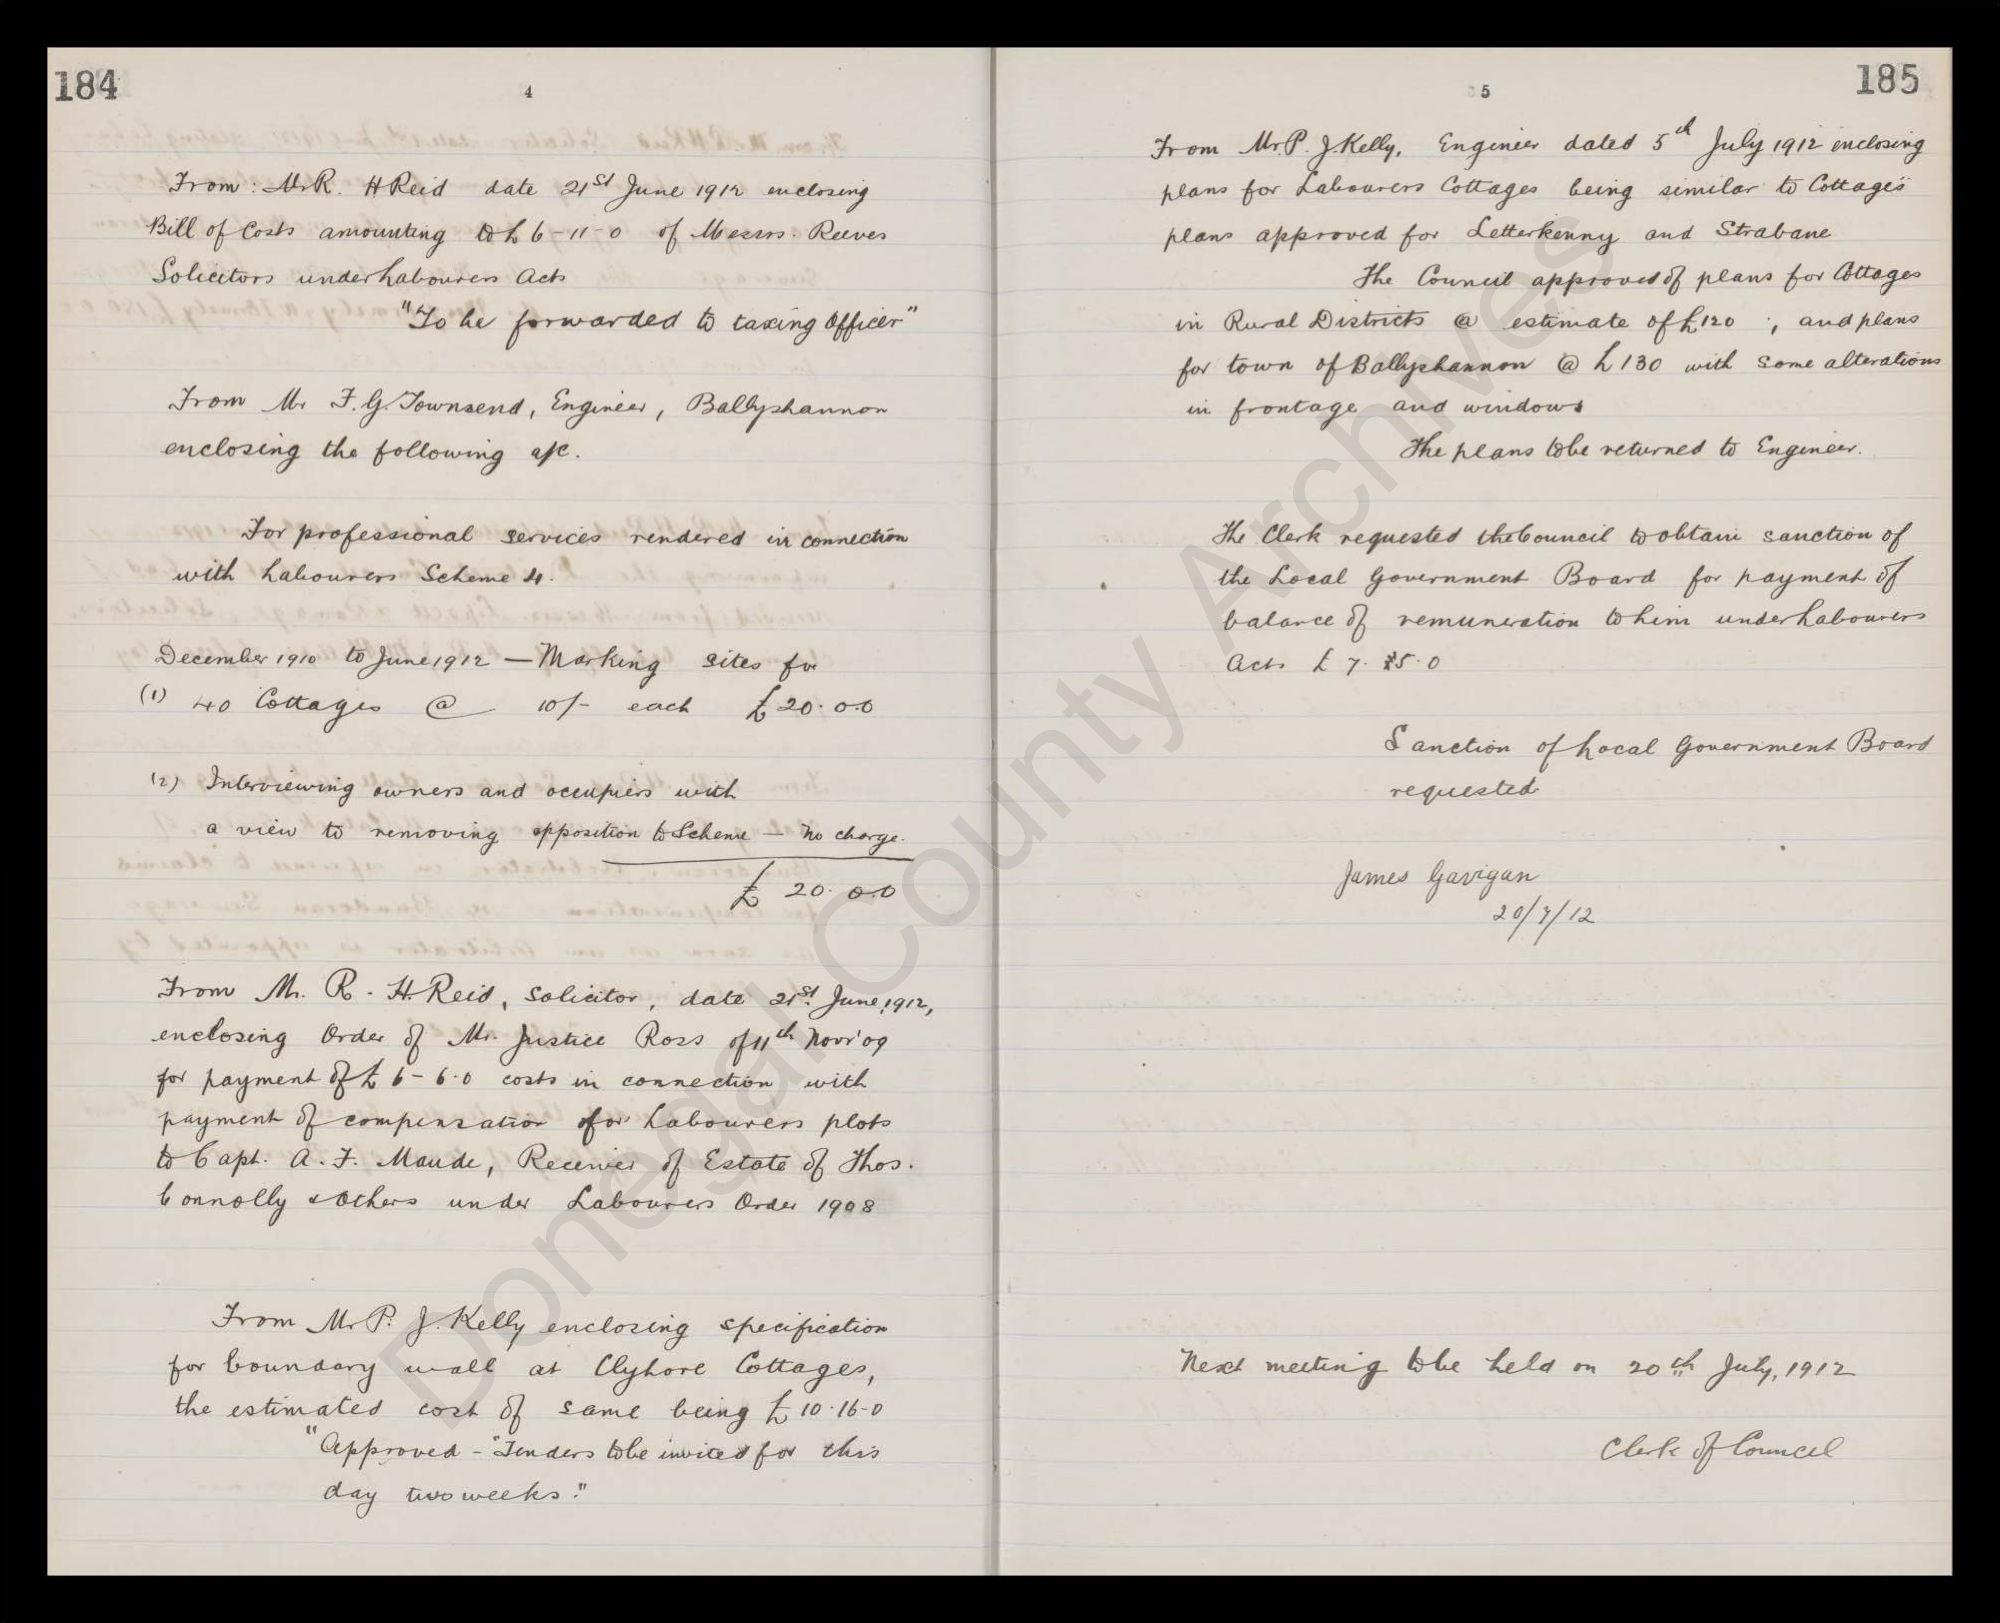 184
4
From: Mr R. H Reid date 21st June 1912 enclosing
Bill of Costs amounting to £ 6-11-0 of Messrs. Reeves
Solicitors under Labourers Acts
"To be forwarded to taxing Officer"
From Mr F. G. Townsend, Engineer, Ballyshannon
enclosing the following a/c.
For professional services rendered in connection
with Labourers Scheme 4.
December 1910 to June 1912 — Marking sites for
(1) 40 Cottages @ 10/- each £20.0.0
(2) Interviewing owners and occupiers with
a view to removing opposition to Scheme — No charge.
£ 20.0.0
From Mr. R. H. Reid, Solicitor, date 21st. June, 1912,
enclosing Order of Mr. Justice Ross of 11th Novr '09
for payment of £ 6-6.0 costs in connection with
payment of compensation for Labourers plots
to Capt. A. F. Maude, Receiver of Estate of Thos.
Connolly & Others under Labourers Order 1908
From Mr P. J. Kelly enclosing specification
for boundary wall at Clyhore Cottages,
the estimated cost of same being £ 10-16-0
"Approved - "Tenders to be invited for this
day two weeks."
185
5
From Mr. P. J. Kelly, Engineer dated 5th July 1912 enclosing
plans for Labourers Cottages being similar to Cottages
plans approved for Letterkenny and Strabane
The Council approved of plans for Cottages
in Rural Districts @ estimate of £120 ; and plans
for town of Ballyshannon @ £130 with some alterations
in frontage and windows
The plans to be returned to Engineer.
The Clerk requested the Council to obtain sanction of
the Local Government Board for payment of
balance of remuneration to him under Labourers
Acts £ 7. 5.0
Sanction of Local Government Board
requested
James Gavigan
20/7/12
Next meeting to be held on 20th July, 1912
Clerk of Council
Donegal County Archives